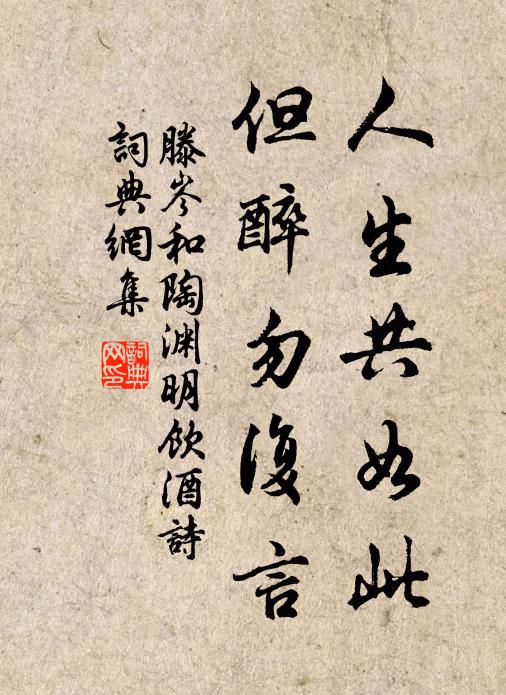 人生共如此
但醉勿復言
滕岑和陶渊明飲酒詩
詞典網集
詞典网印